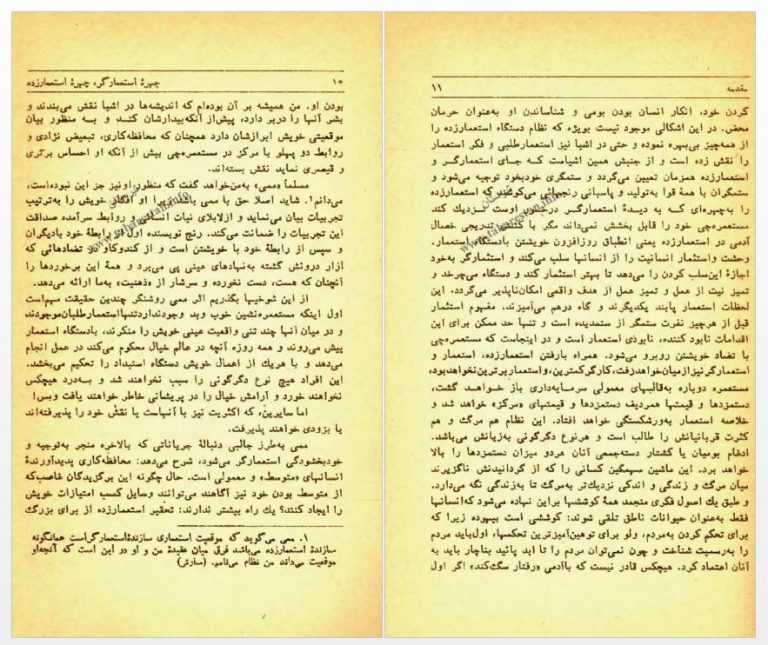 ۱۰ چهرهٔ استعمارگر، چهرهٔ استعمارزده
بودن او. من همیشه بر آن بوده‌ام که اندیشه‌ها در اشیا نقش می‌بندند و
بشر آنها را دربر دارد، پیش‌از آنکه‌بیدارشان کنـد و بــه منظور بیان
موقعیتی خویش ابرازشان دارد همچنان که محافظه‌کاری، تبعیض نژادی و
روابط دو پهلو با مرکز در مستعمره‌چی بیش از آنکه او احساس برتری
و قیصری نماید نقش بسته‌اند.
مسلماً «ممی» به‌من‌خواهد گفت که منظور او نیز جز این نبوده‌است،
می‌دانم۱. شاید اصلا حق با ممی باشد زیرا او افکار خویش را به‌ترتیب
تجربیات بیان می‌نماید و ازلابلای نیات انسانی و روابط سرآمده صداقت
این تجربیات را ضمانت می‌کند. رنج نویسنده اول از رابطهٔ خود بادیگران
و سپس از رابطهٔ خود با خویشتن است و از کندوکاو در تضادهائی که
آزار درونش گشته به‌نهادهای عینی پی می‌برد و همهٔ این برخوردها را
آنچنان که هست، دست نخورده و سرشار از «ذهنیت» به‌ما ارائه می‌دهد.
از این شوخیها بگذریم اثر ممی روشنگر چندین حقیقت سهم‌است
اول اینکه مستعمره‌نشین خوب وبد وجودنداردتنهااستعمارطلبان‌موجودند
و در میان آنها چند تنی واقعیت عینی خویش را منکرند، بادستگاه استعمار
پیش می‌روند و همه روزه آنچه در عالم خیال محکوم می‌کنند در عمل انجام
می‌دهد و با هریك از اعمال خویش دستگاه استبداد را تحکیم می‌بخشد.
این افراد هیچ نوع دگرگونی را سبب نخواهند شد و بــه‌درد هیچکس
نخواهند خورد و آرامش خیال را در پریشانی خاطر خواهند یافت وبس!
اما سایرین، که اکثریت نیز با آنهاست یا نقش خود را پذیرفته‌اند
یا بزودی خواهند پذیرفت.
ممی به‌طرز جالبی دنبالهٔ جریاناتی که بالاخره منجر به‌توجیه و
خودبخشودگی استعمارگر می‌شود، شرح می‌دهد: محافظه‌کاری پدیدآورندهٔ
انسانهای «متوسط» و معمولی است. حال چگونه این برگزیدگان غاصب‌که
از متوسط بودن خود نیز آگاهند می‌توانند وسایل کسب امتیازات خویش
را ایجاد کنند؟ یك راه بیشتر ندارند: تحقیر استعمارزده از برای بزرگ
۱. ممی می‌گوید که موقعیت استعماری سازندهٔ‌استعمارگراست همانگونه
سازندهٔ استعمارزده می‌باشد فرق میان عقیدهٔ من و او در این است که آنچه‌او
موقعیت می‌داند من نظام می‌نامم. (سارتر)
مقدمه ۱۱
کردن خود، انکار انسان بودن بومی و شناساندن او به‌عنوان حرمان
محض. در این اشکالی موجود نیست بویژه که نظام دستگاه استعمارزده را
از همه‌چیز بی‌بهره نموده و حتی در اشیا نیز استعمارطلبی و فکر استعمار
را نقش زده است و از جنبش همین اشیاست کـه جـای استعمارگـر و
استعمارزده همزمان تعیین می‌گردد و ستمگری خودبخود توجیه می‌شود و
ستمگران با همهٔ قوا به‌تولید و پاسبانی رنجهائی می‌کوشند که استعمارزده
را به‌چهره‌ای کــه به دیــدهٔ استعمارگـر درخور اوست نـزدیك کند
مستعمره‌چی خود را قابل بخشش نمی‌داند مگر با کشتن تدریجی خصال
آدمی در استعمارزده یعنی انطباق روزافزون خویشتن بادستگاه استعمار.
وحشت واستثمار انسانیت را از انسانها سلب می‌کند و استثمارگر به‌خود
اجازهٔ این‌سلب کردن را می‌دهد تا بهتر استثمار کند و دستگاه می‌چرخد و
تمیز نیت از عمل و تمیز عمل از هدف واقعی امکان‌ناپذیر می‌گردد، این
لحظات استعمار پابند یکدیگرند و گاه درهم می‌آمیزند. مفهوم استثمار
قبل از هرچیز نفرت ستمگر از ستمدیده است و تنها حد ممکن برای این
اقدامات نابود کننده، نابودی استعمار است و در اینجاست که مستعمره‌چی
با تضاد خویشتن روبرو می‌شود. همراه بارفتن استعمارزده، استعمار و
استعمارگر نیزازمیان‌خواهدرفت، کارگر کمترین، واستعمار برترین‌نخواهدبود،
مستعمره دوباره به‌قالبهای معمولی سرمـایه‌داری باز خـواهـد گشت،
دستمزدها و قیمتها همردیف دستمزدها و قیمتهای «مرکز» خواهد شد و
خلاصه استعمار به‌ورشکستگی خواهد افتاد. این نظام هم مرگ و هم
کثرت قربانیانش را طالب است و هرنوع دگرگونی به‌زیانش می‌باشد.
ادغام بومیان یا کشتار دسته‌جمعی آنان هردو میزان دستمزدها را بالا
خواهد برد. این ماشین سهمگین کسانی را که از گردانیدنش ناگزیرند
میان مرگ و زندگی و اندکی نزدیك‌تر به‌مرگ تا به‌زندگی نگه می‌دارد.
و طبق یك اصول فکری منجمد همهٔ کوششها براین نهاده می‌شود که‌انسانها
فقط به‌عنوان حیوانات ناطق تلقی شوند: کوششی است بیهوده زیرا که
برای تحکم کردن به‌مردم، ولو برای توهین‌آمیزترین تحکمها، اول‌باید مردم
را به‌رسمیت شناخت و چون نمی‌توان مردم را تا ابد پائید بناچار باید به
آنان اعتماد کرد. هیچکس قادر نیست که باآدمی «رفتار سگ‌کند» اگر اول